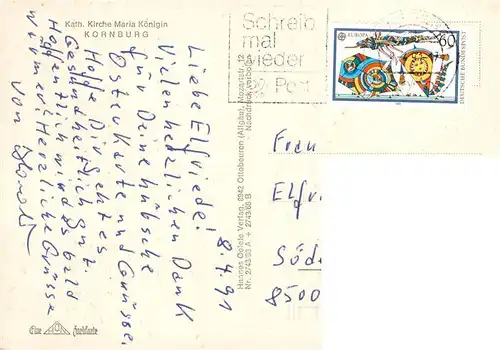 Kath. Kirche Maria Königin
KORNBURG
8.4.91
Liebe Elfriede!
Vielen herzlichen Dank
für Deine hübsche
Osterkarte und Grüsse.
Hoffe Dir geht es
Gesundheitlich gut.
Hoffentlich wird es bald
wärmer! Herzliche Grüsse
von
Hannes Oefele Verlag, 8942 Ottobeuren (Allgäu), Mozartstr. 12
Nr. 2743/93 A + 2743/66 B Nachdruck verboten
Schreib
mal
wieder
Post
EUROPA
60
DEUTSCHE BUNDESPOST
Frau
Elfr
Süd
8500
Eine Farbkarte